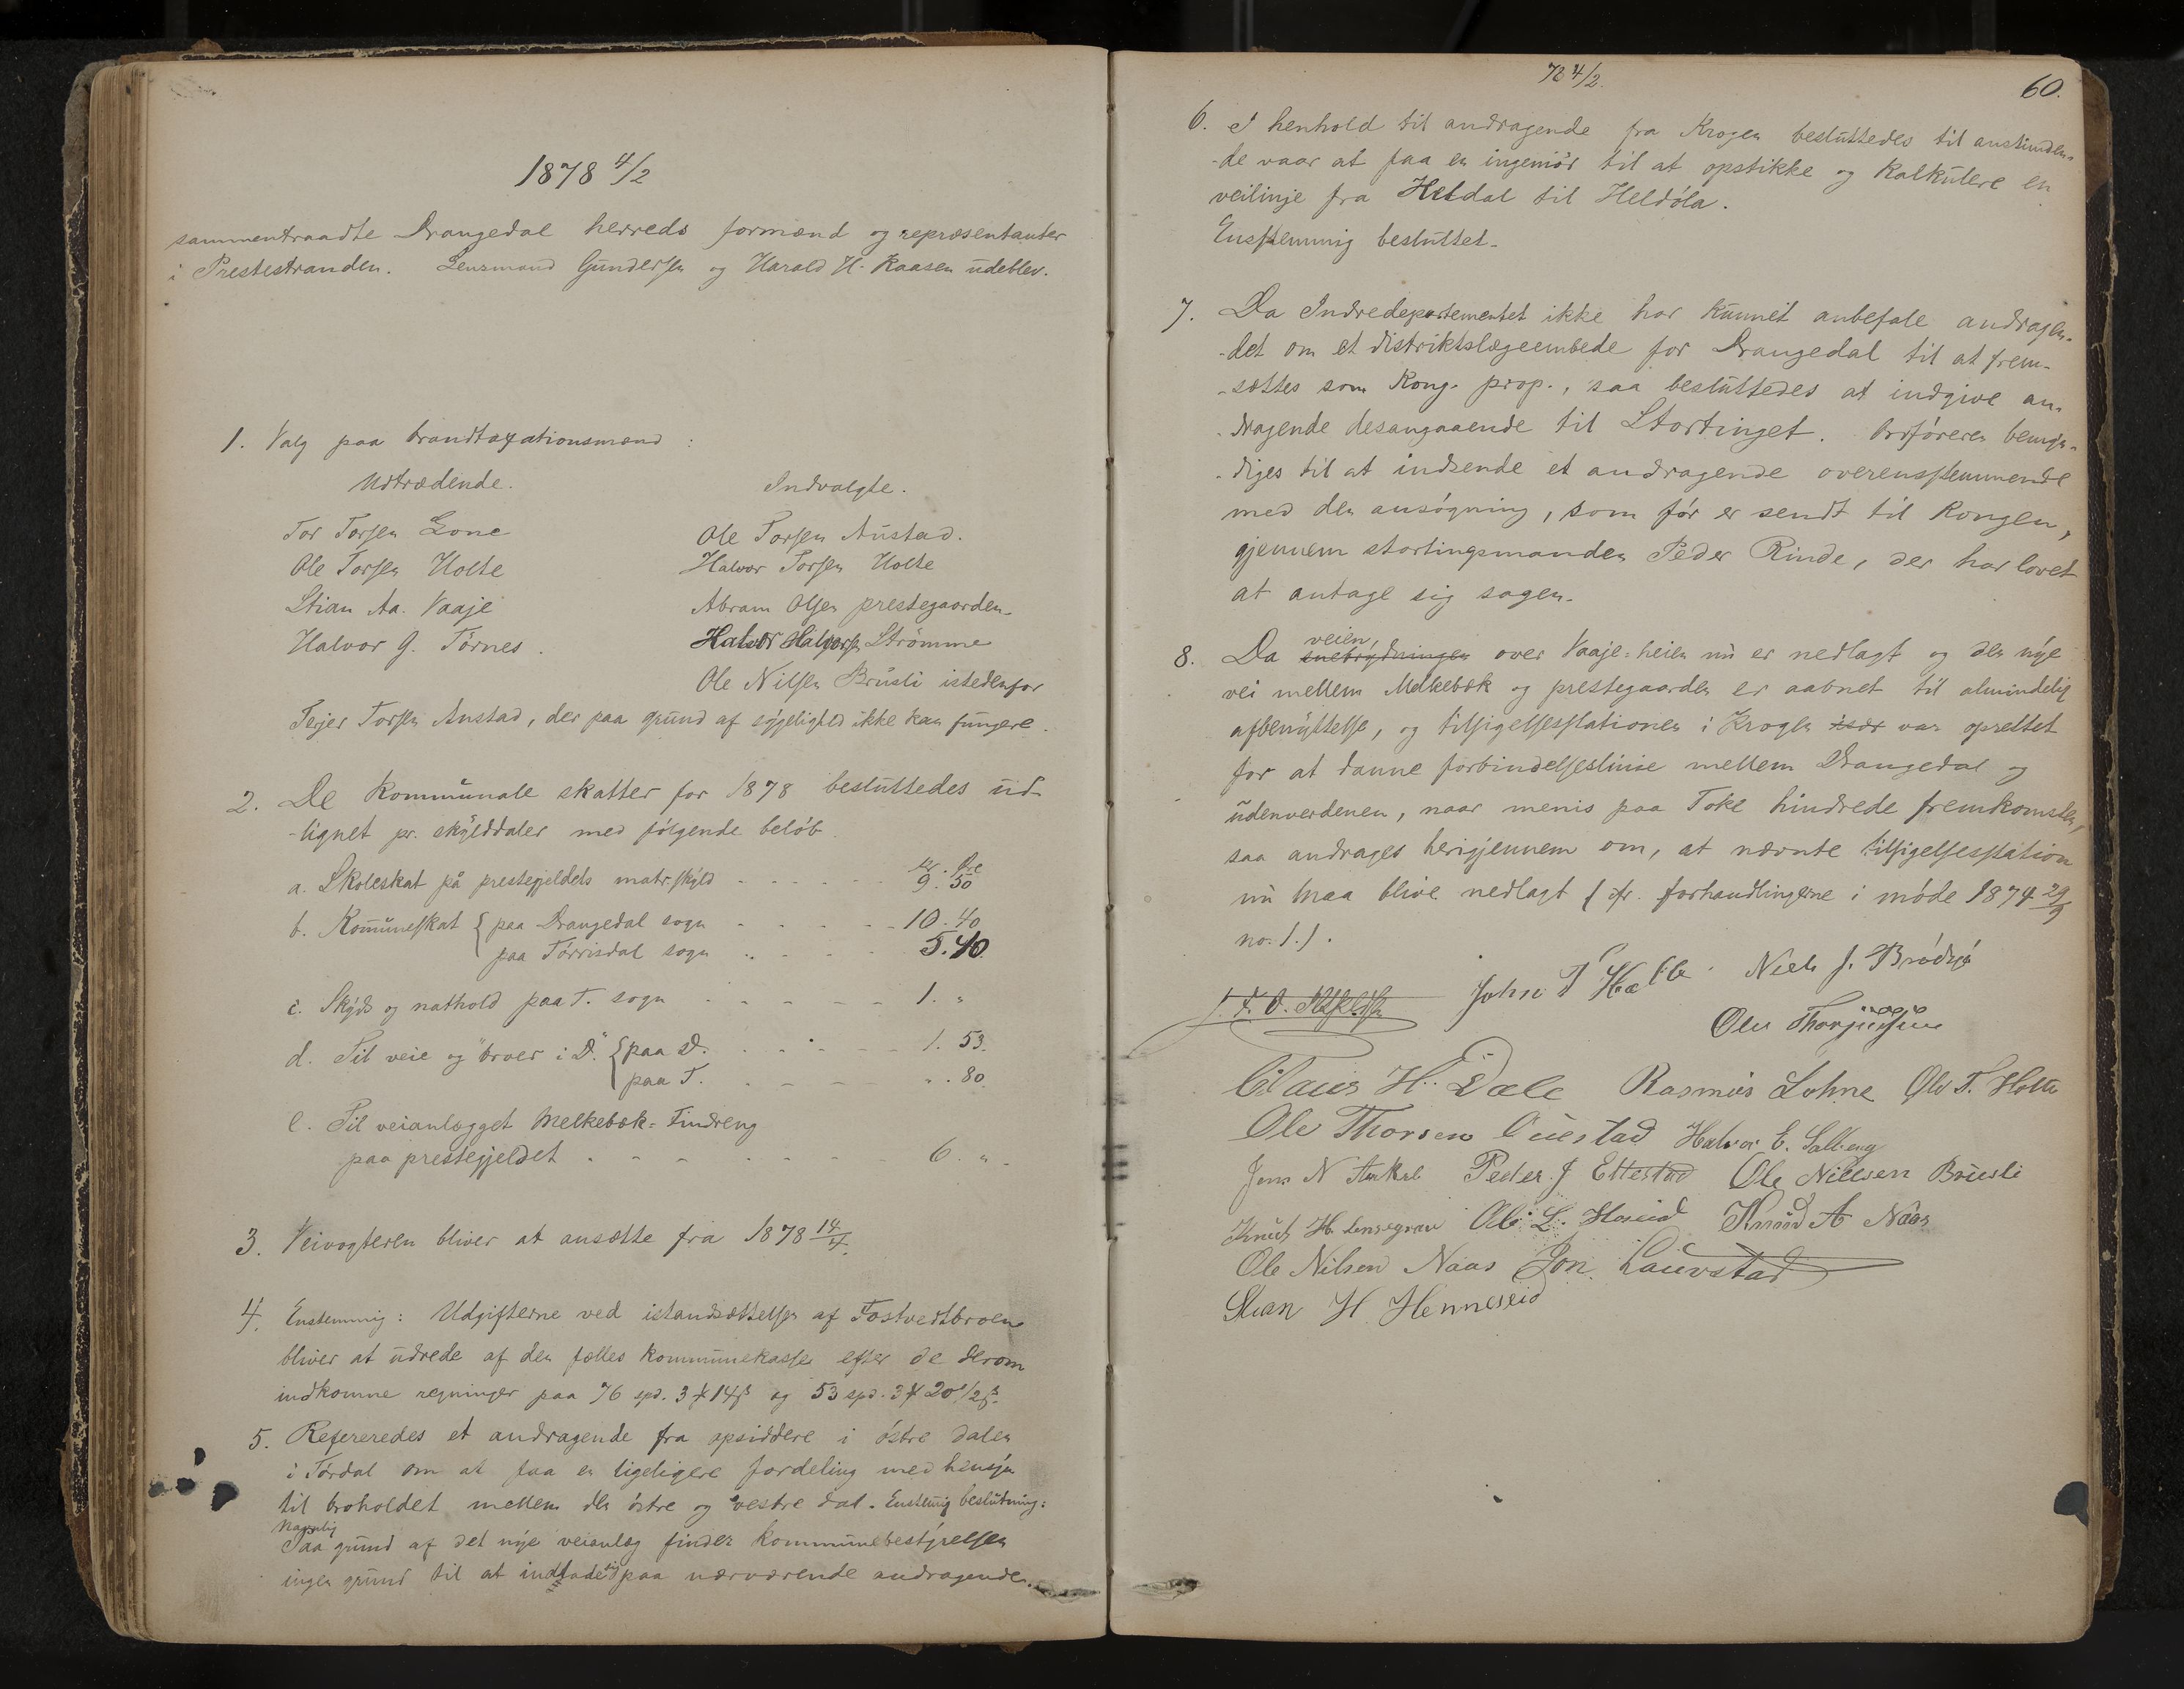 1878 4/2
sammentraadte Drangedal herreds formænd og repræsentanter
i Prestestranden. Lensmand Gundersen og Harald H. Kaasen udeblev.
1. Valg paa brandtaxationsmænd:
Udtrædende. Indvalgte.
Tor Torsen Lone Ole Torsen Austad.
Ole Torsen Holte Halvor Torsen Holte
Stian Aa. Vaaje Abram Olsen prestegaarden.
Halvor G. Törnes. Halvor Halvorsen Strömme
Ole Nilsen Brusli istedenfor
Terjer Torsen Austad, der paa grund af sygelighed ikke kan fungere.
2. De kommunale skatter for 1878 besluttedes ud-
-lignet pr. skylddaler med följende belöb
kr. Öre
a. Skoleskat på prestegjeldets matr. skyld - - - - 9. 50
b. Kommuneskat { paa Drangedal sogn - - - - 10. 40
paa Törrisdal sogn - - - - 5. 40
c. Skyds og nathold paa T. sogn - - - - 1. "
d. Til veie og "broer i D." { paa D. - - - - 1. 53.
paa T. - - - - ". 80.
e. Til veianlægget Melkebæk = Findreng
paa prestegjeldet - - - - 6. "
3. Veivogteren bliver at ansætte fra 1878 14/4.
4. Enstemmig: Udgifterne ved istandsættelsen af Tostvedtbroen
bliver at udrede af den fælles kommunekasse efter de derom
indkomne regninger paa 76 spd. 3 # 14 ß og 53 spd. 3 # 20 1/2 ß.
5. Refereredes et andragende fra opsiddere i östre dalen
i Tördal om at faa en ligeligere fordeling med hensyn
til broholdet mellem den östre og vestre dal. Enstemmig beslutning:
Navnlig
Paa grund af det nye veianlæg finder kommunebestyrelsen
ingen grund til at indlade sig paa nærværende andragende.
78 4/2.
60.
6. I henhold til andragende fra Krogen besluttedes til anstunden-
-de vaar at faa en ingeniör til at opstikke og kalkulere en
veilinje fra Heldal til Heldöla.
Enstemmig besluttet.
7. Da Indredepartementet ikke har kunnet anbefale andragen-
-det om et distriktslægeembede for Drangedal til at frem-
-sættes som Kong. prop., saa besluttedes at indgive an-
-dragende desangaaende til Stortinget. Ordföreren bemyn-
-diges til at indsende et andragende overensstemmende
med den ansögning, som för er sendt til Kongen,
gjennem stortingsmanden Peder Rinde, der har lovet
at antage sig sagen.
8. Da veien, snebrydningen over Vaaje-heien nu er nedlagt og den nye
vei mellem Melkebæk og prestegaarden er aabnet til almindelig
afbenyttelse, og tilsigelsesstationen i Krogen var oprettet
for at danne forbindelseslinie mellem Drangedal og
udenverdenen, naar menis paa Toke hindrede fremkomsten,
saa andrages herigjennem om, at nævnte tilsigelsesstation
nu maa blive nedlagt (cfr. forhandlingerne i möde 1874 29/9
no. 1.).
John T Holte Niels J. Brödsjö
Claus H. Dale Rasmus Lohne Ole T. Holte
Ole Thorsen Oustad Halvor E. Solberg
Jens N Peder J Ettestad Ole Nilsen Brusli
Knut H. Ole L. Knud A Naas
Ole Nilsen Naas Jon Lauvstad
Stian H Henneseid